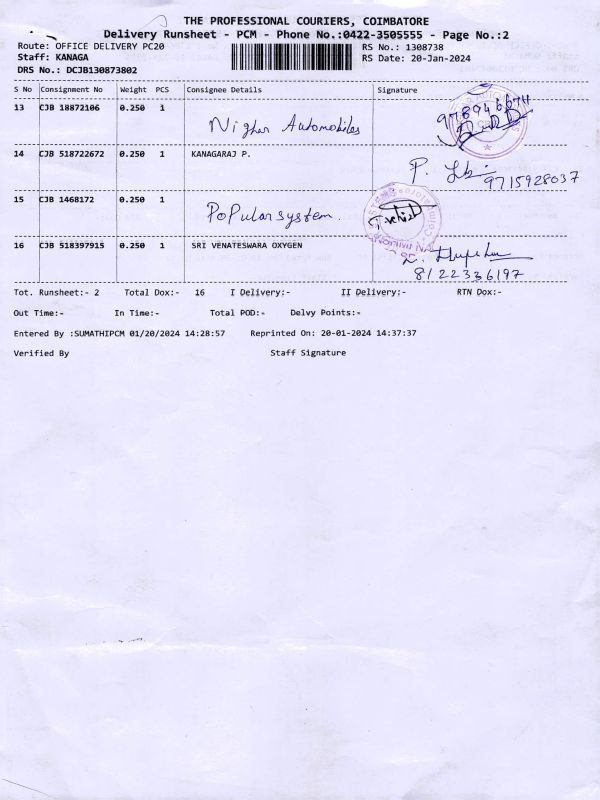 THE PROFESSIONAL COURIERS, COIMBATORE
Delivery Runsheet - PCM - Phone No.:0422-3505555 - Page No.:2
Route: OFFICE DELIVERY PC20 RS No.: 1308738
Staff: KANAGA RS Date: 20-Jan-2024
DRS No.: DCJB130873802
S No Consignment No Weight PCS Consignee Details Signature
13 CJB 18872106 0.250 1 Nighar Automobiles
14 CJB 518722672 0.250 1 KANAGARAJ P. P.
9715928037
15 CJB 1468172 0.250 1 PoPular system.
16 CJB 518397915 0.250 1 SRI VENATESWARA OXYGEN
8122336197
Tot. Runsheet:- 2 Total Dox:- 16 I Delivery:- II Delivery:- RTN Dox:-
Out Time:- In Time:- Total POD:- Delvy Points:-
Entered By :SUMATHIPCM 01/20/2024 14:28:57 Reprinted On: 20-01-2024 14:37:37
Verified By Staff Signature